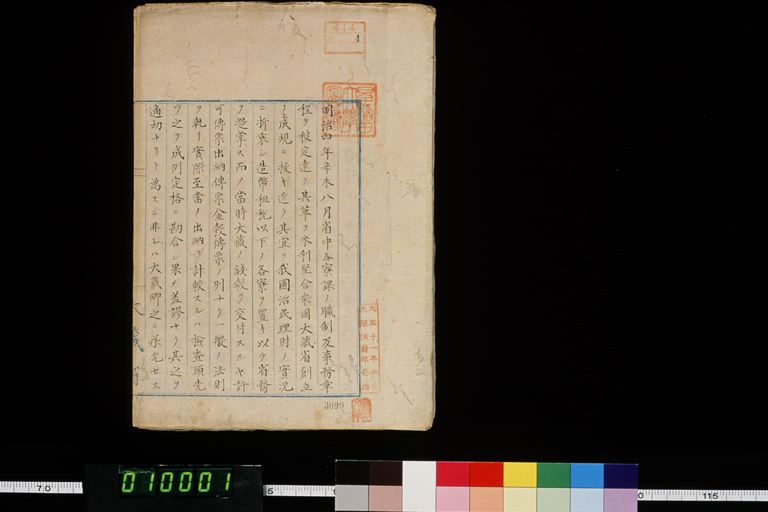 明治四年辛未八月省中各寮課ノ職制及事務章
程ヲ被定遠ク其革ヲ米利堅合衆国大蔵省創立
ノ成規ニ採キ近ク其宜ヲ我国治民理財ノ實况
ニ折衷シ造幣租税以下ノ各寮ヲ置キ以テ省務
ヲ提掌ス而ノ當時大蔵ノ錢穀ヲ交付スルヤ許
可傳票出納傳票金穀傳票ノ別ナリ一般ノ法則
ヲ執リ實際至當ノ出納ヲ計較スルハ檢査頭先
ツ之ヲ成例定格ニ勘合シ果ノ差謬ナク其之ヲ
適切ナリト為スニ非レハ大蔵卿之ニ承允セス
大蔵省
3099
010001
70
5
0
115